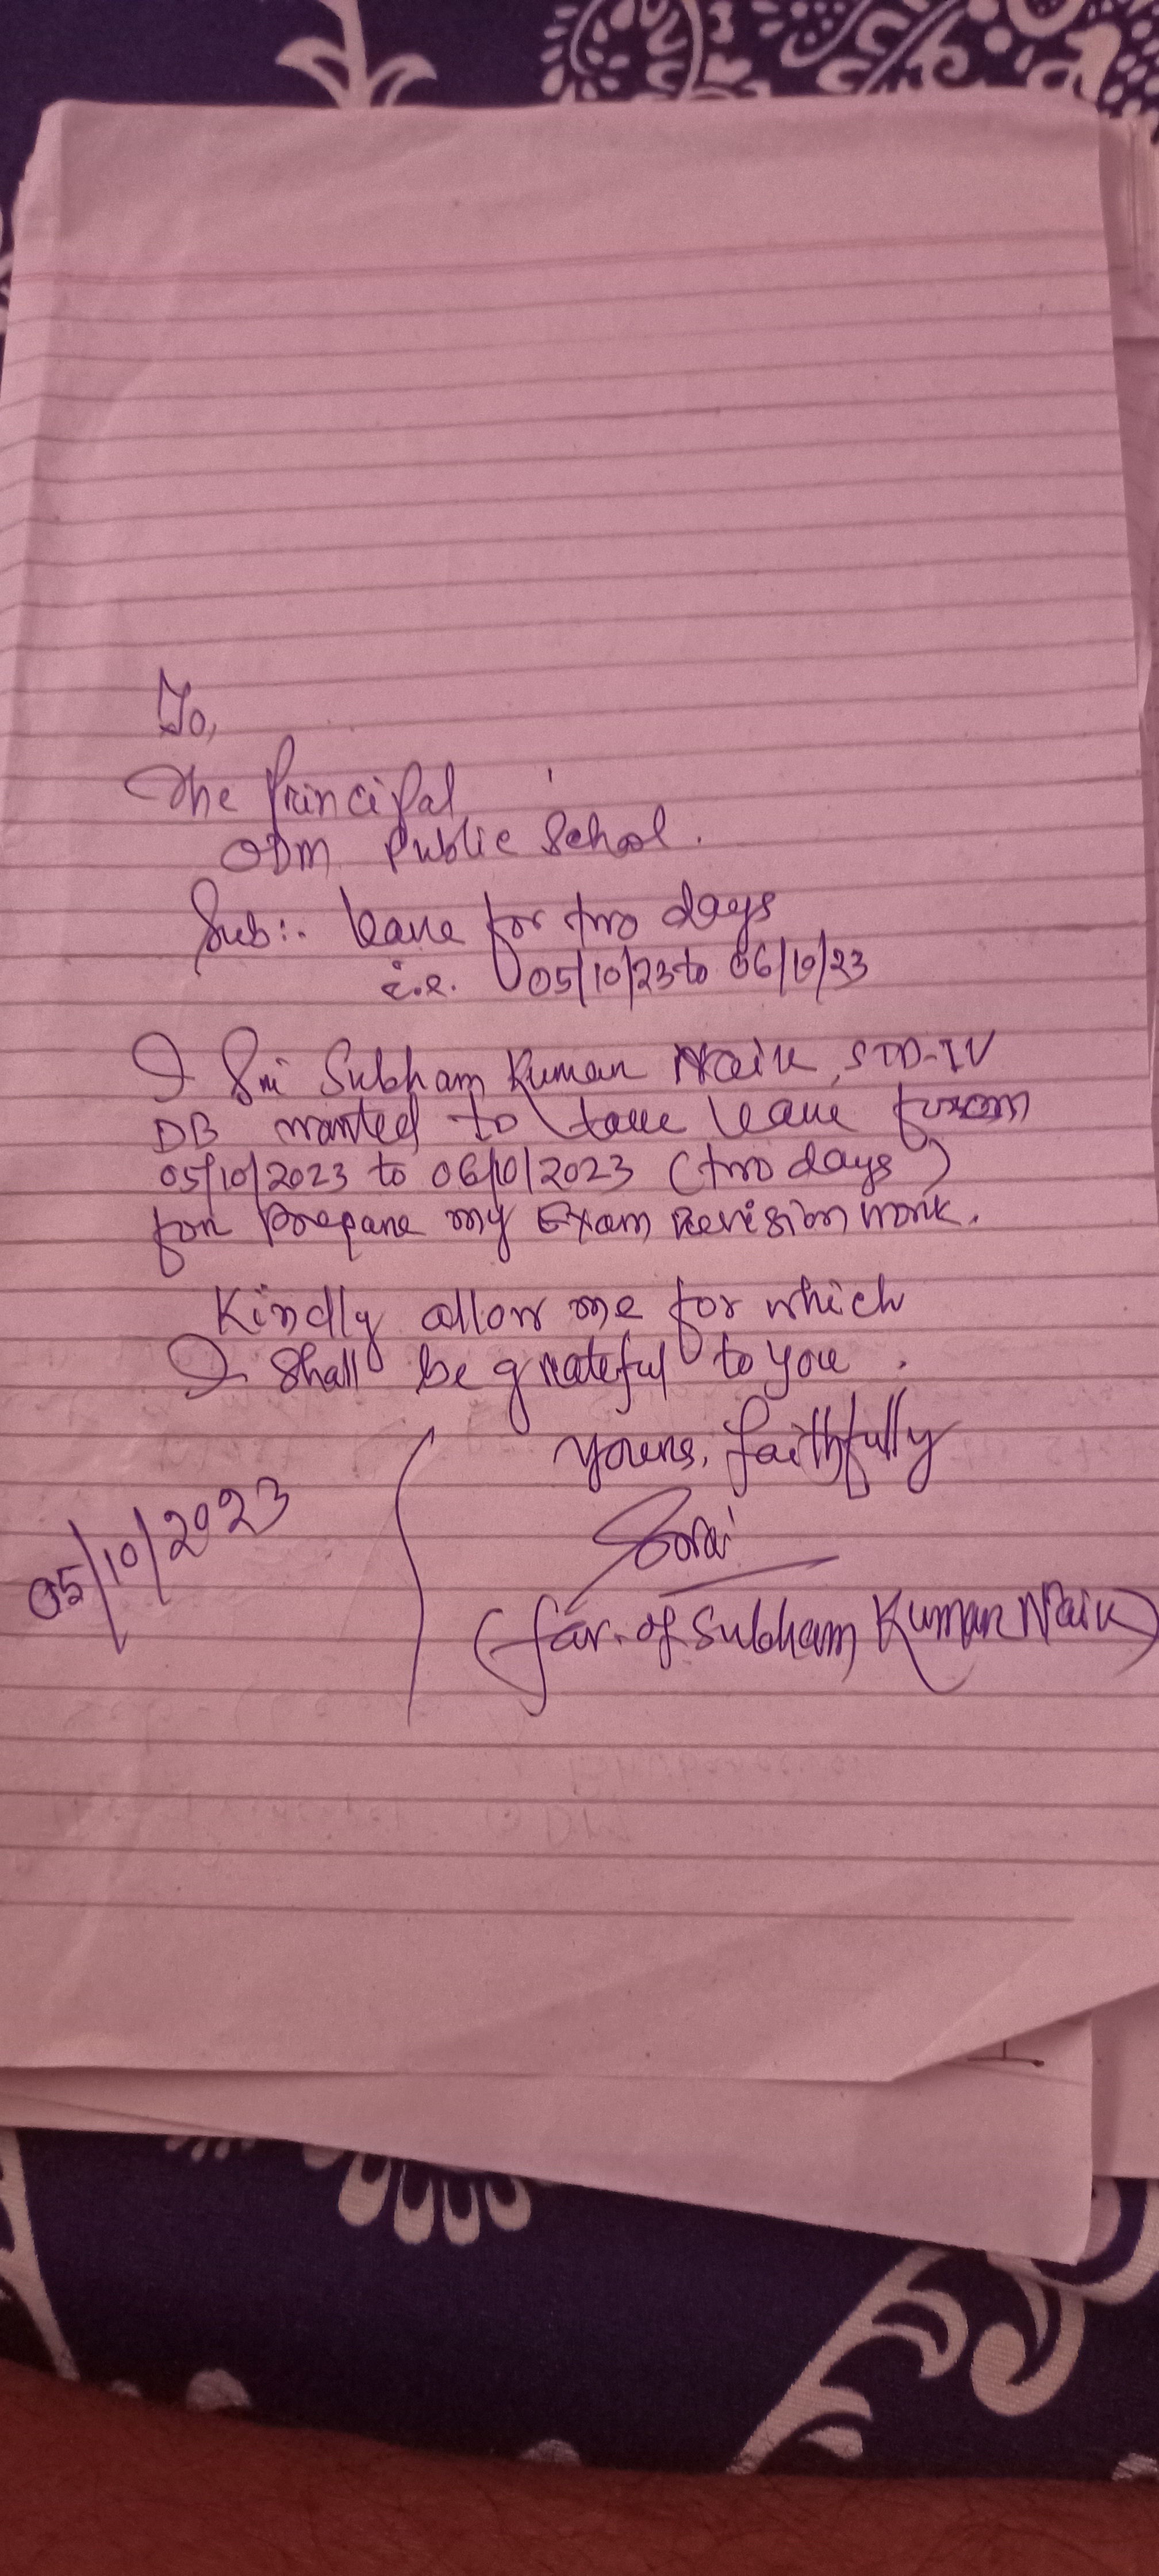 To,
The Principal
ODM Public School.
Sub:- leave for two days
i.e. 05/10/23 to 06/10/23
I Sri Subham Kumar Naik, STD-IV
DB wanted to take leave from
05/10/2023 to 06/10/2023 (two days)
for Prepare my Exam Revision work.
Kindly allow me for which
I shall be grateful to you.
Yours, faithfully
05/10/2023
(fav. of Subham Kumar Naik)